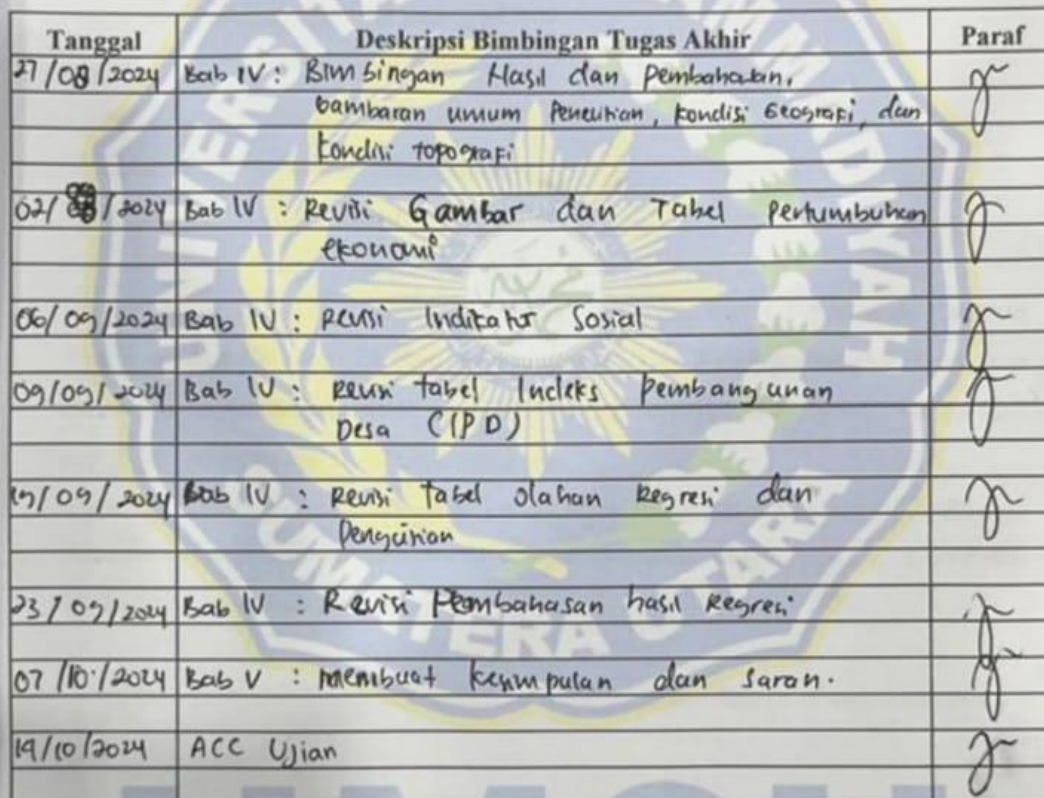 Tanggal Deskripsi Bimbingan Tugas Akhir Paraf
27/08/2024 Bab IV : Bimbingan Hasil dan Pembahasan,
Gambaran umum Penelitian, kondisi Geografi, dan
kondisi topografi
02/ /2024 Bab IV : Revisi Gambar dan Tabel Pertumbuhan
ekonomi
06/09/2024 Bab IV : Revisi Indikator Sosial
09/09/2024 Bab IV : Revisi tabel Indeks Pembangunan
Desa (IPD)
19/09/2024 Bab IV : Revisi Tabel olahan Regresi dan
Pengujian
23/09/2024 Bab IV : Revisi Pembahasan hasil Regresi
07/10/2024 Bab V : membuat kesimpulan dan saran.
19/10/2024 ACC Ujian
UNIVERSITAS MUHAMMADIYAH
SUMATERA UTARA